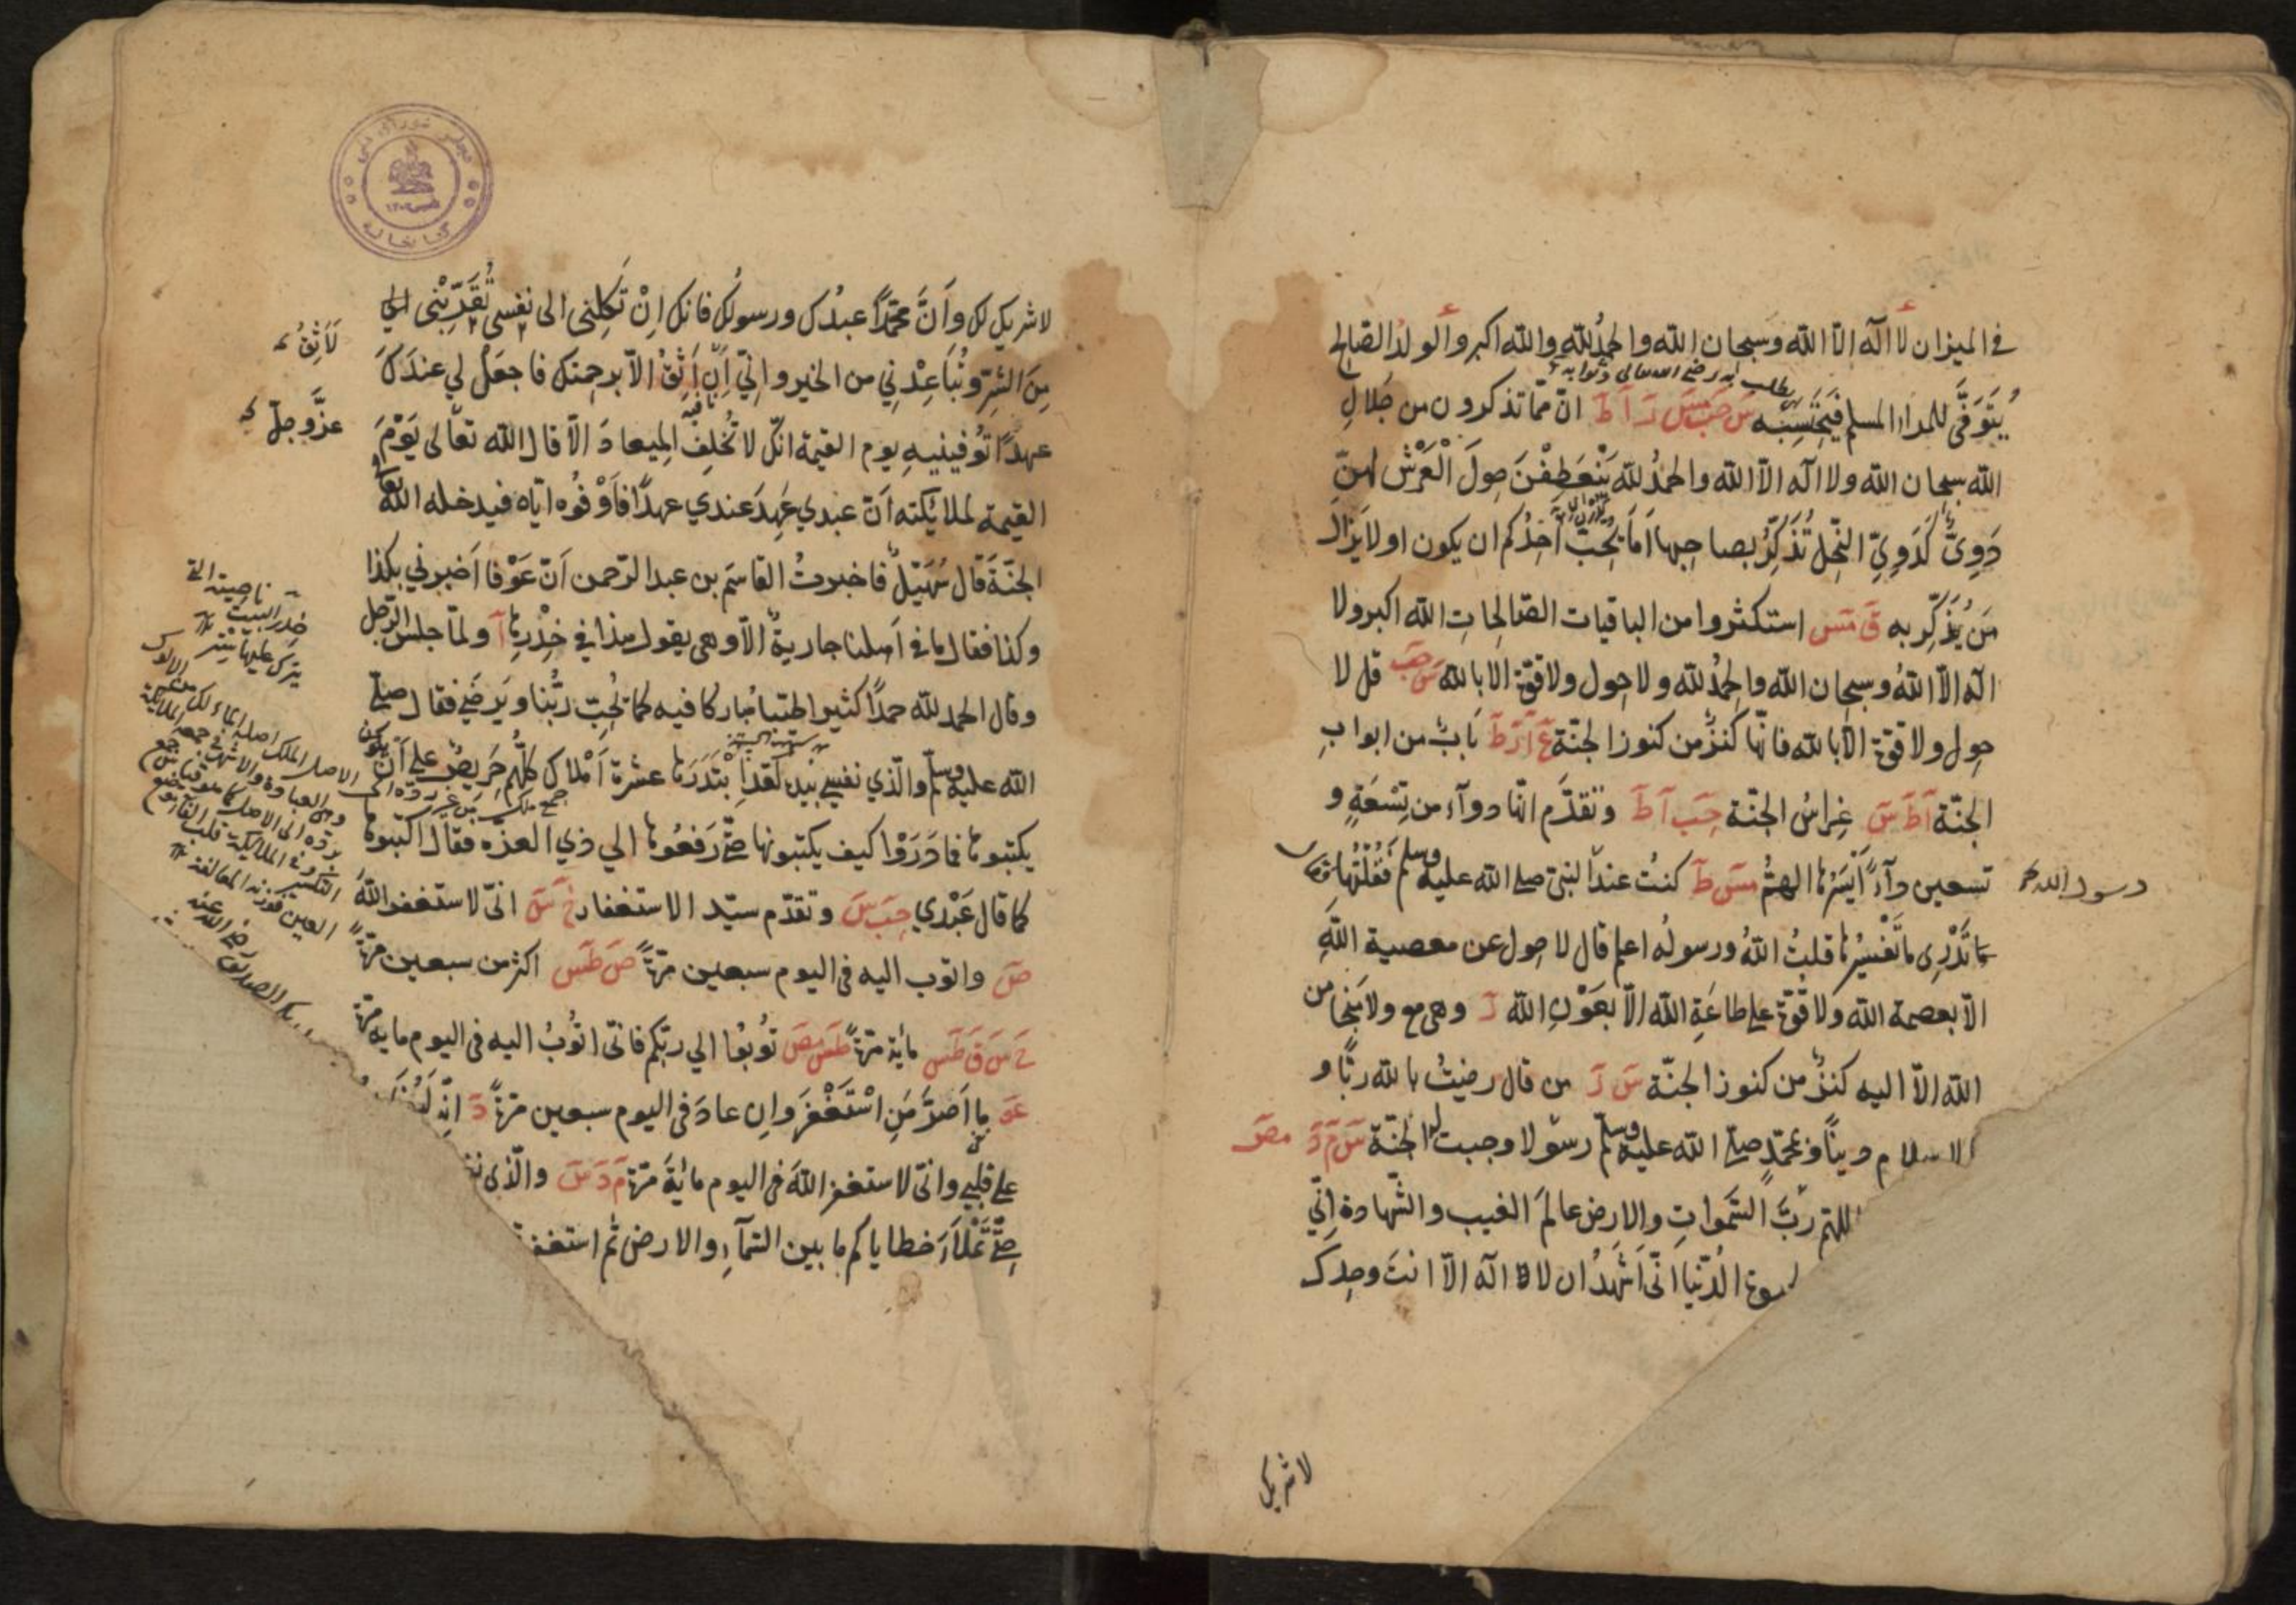 في الميزان لا اله الا الله وسبحان الله والحمد لله والله اكبر والولد الصالح
يُتَوَفَّى للمرء المسلم فيحتسبه س حب مس ر ا ط ان مما تذكرون من جلال
الله سبحان الله ولا اله الا الله والحمد لله ينعطفن حول العرش لهن
دَوِيٌّ كَدَوِيِّ النحل تُذَكِّرُ بصاحبها اَمَا يُحِبُّ احدُكم ان يكون او لا يزال
من يُذَكِّر به ق مس استكثروا من الباقيات الصالحات الله اكبر ولا
اله الا الله وسبحان الله والحمد لله ولا حول ولا قوة الا بالله س حب قل لا
حول ولا قوة الا بالله فانها كنز من كنوز الجنة ع ا ر ط باب من ابواب
الجنة ا ط س غِراسُ الجنة حب ا ط وتقدم انها دوآء من تِسْعَةٍ و
تسعين دآءً اَيْسَرُها الهمُّ مس ط كنتُ عند النبي صلى الله عليه وسلم فَقُلْتُها فقال
رسول الله
ما تَدْرِي ما تفسيرُها قلتُ اللهُ ورسولُه اعلم قال لا حول عن معصية اللهِ
الا بعصمة الله ولا قوة على طاعَةِ الله الا بعَوْنِ الله ر وهي مع ولا مَنْجَا من
الله الا اليه كنز من كنوز الجنة س ر من قال رضيتُ بالله ربًّا و
الاسلام دينًا وبمحمدٍ صلى الله عليه وسلم رسولا وجبت له الجنة س م د مص
اللهم ربَّ السموات والارض عالمَ الغيب والشهادة اِنّي
الدنيا انّى اَشْهَدُ ان لا اله الا انت وحدك
لا شريك
لا شريك لك واَنَّ محمدًا عبدُك ورسولُك فانك اِنْ تَكِلْني الى نفسي تُقَرِّبْني الي
مِنَ الشرِّ وتُباعِدْني من الخير واِنّي اِن اَثِقُ الا برحمتك فاجعلْ لي عندَكَ
لَا اَثِقُ
عهدًا تُوفينيهِ يوم القيمة انك لا تُخلِفُ الميعادَ الا قال الله تعالى يَوْمَ
عزَّ وجلّ
القيمة لملائكته اَنّ عبدي عَهِدَ عندي عهدًا فاَوْفُوه اياه فيدخله الله
الجنةَ قال سُهَيْلٌ فاخبرتُ القاسَم بن عبد الرحمن اَنّ عَوْفا اَخبرني بكذا
وكذا فقال ما في اَهلنا جاريةٌ الا وهي يقول هذا في خِدْرِها ا ولما جلس الرجل
وقال الحمد لله حمدًا كثيرا طيبا مباركا فيه كما يُحِبّ ربُّنا ويَرضَى فقال صلى
الله عليه وسلم والذي نفسي بيده لقد اِبْتَدَرَها عشرة اَمْلاك كلُّهم حَريصٌ على اَنْ
يكتبوها فما دَرَوْا كيف يكتبونها حتى رَفَعُوها الي ذي العزة فقال اكتبوها
كما قال عَبْدي حب س وتقدم سيد الاستغفار خ س انّى لاستغفر اللهَ
ص واتوب اليه فى اليوم سبعين مرةً ص طس اكثر من سبعين مرةً
خ س ق طس مائة مرة طس مص تُوبُوا الي ربكم فانى اتُوبُ اليه فى اليوم مايه مرة
عو ما اَصرَّ مَنِ اسْتَغْفَرَ واِن عادَ فى اليوم سبعين مرةً د انه لَيُغَان
على قلبي وانى لاستغفر اللهَ فى اليوم مائةَ مرة م د س والذى
حتى تَمْلَأَ خطاياكم ما بين السمآءِ والارض ثم استغفر